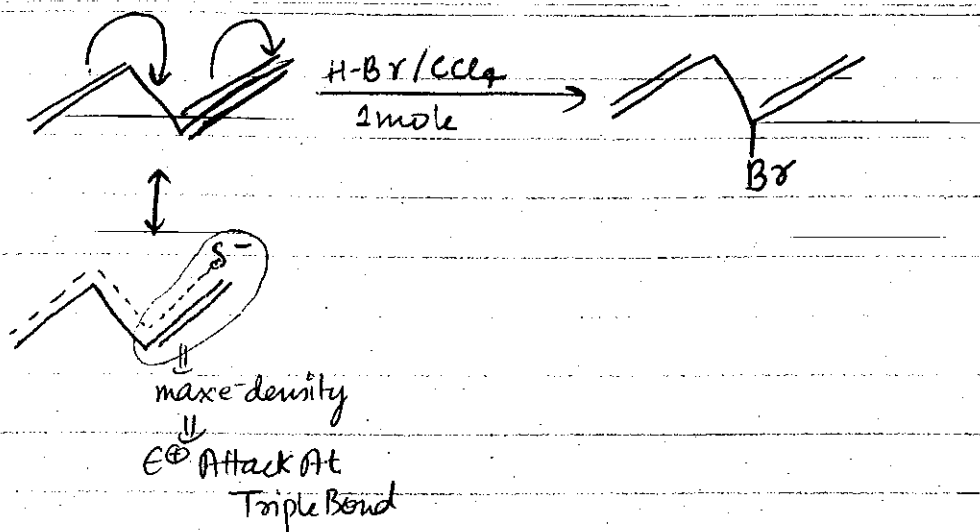 H-Br/CCl4
1mole
Br
δ-
maxe-density
E⊕ Attack At
Triple Bond